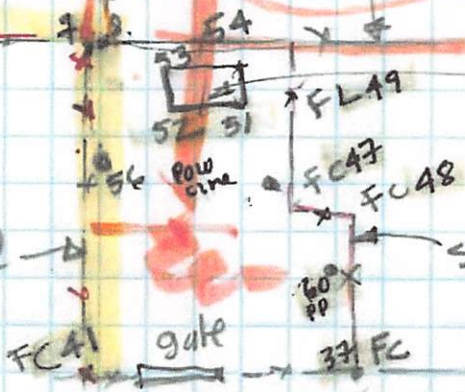 54
53
FL49
52 51
56
Pow
line
FC47
FC48
60
PP
FC41
gate
37 FC